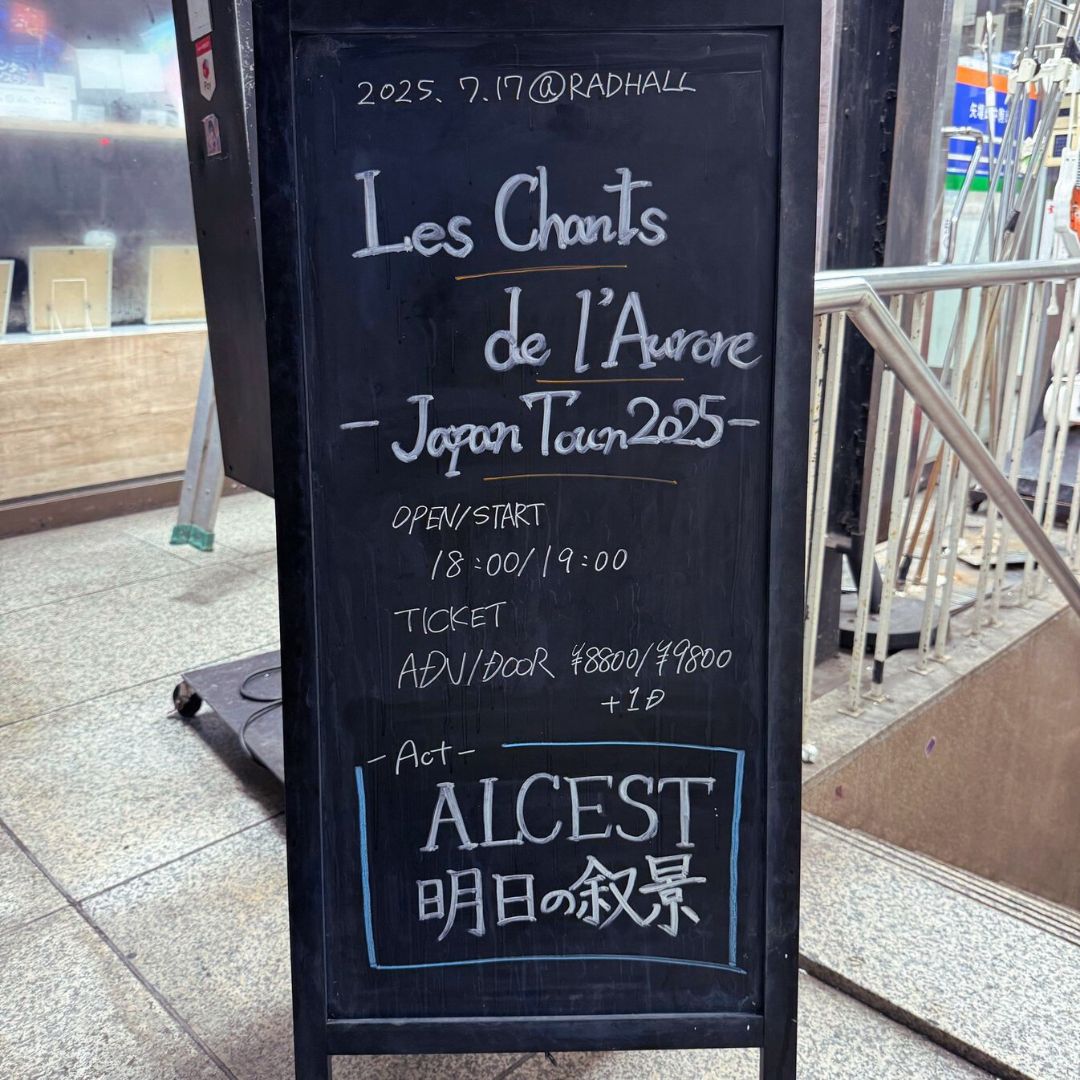 2025. 7.17@RADHALL
Les Chants
de l'Aurore
- Japan Tour 2025 -
OPEN/START
18:00/19:00
TICKET
ADV/DOOR ¥8800/¥9800
+1D
- Act -
ALCEST
明日の叙景